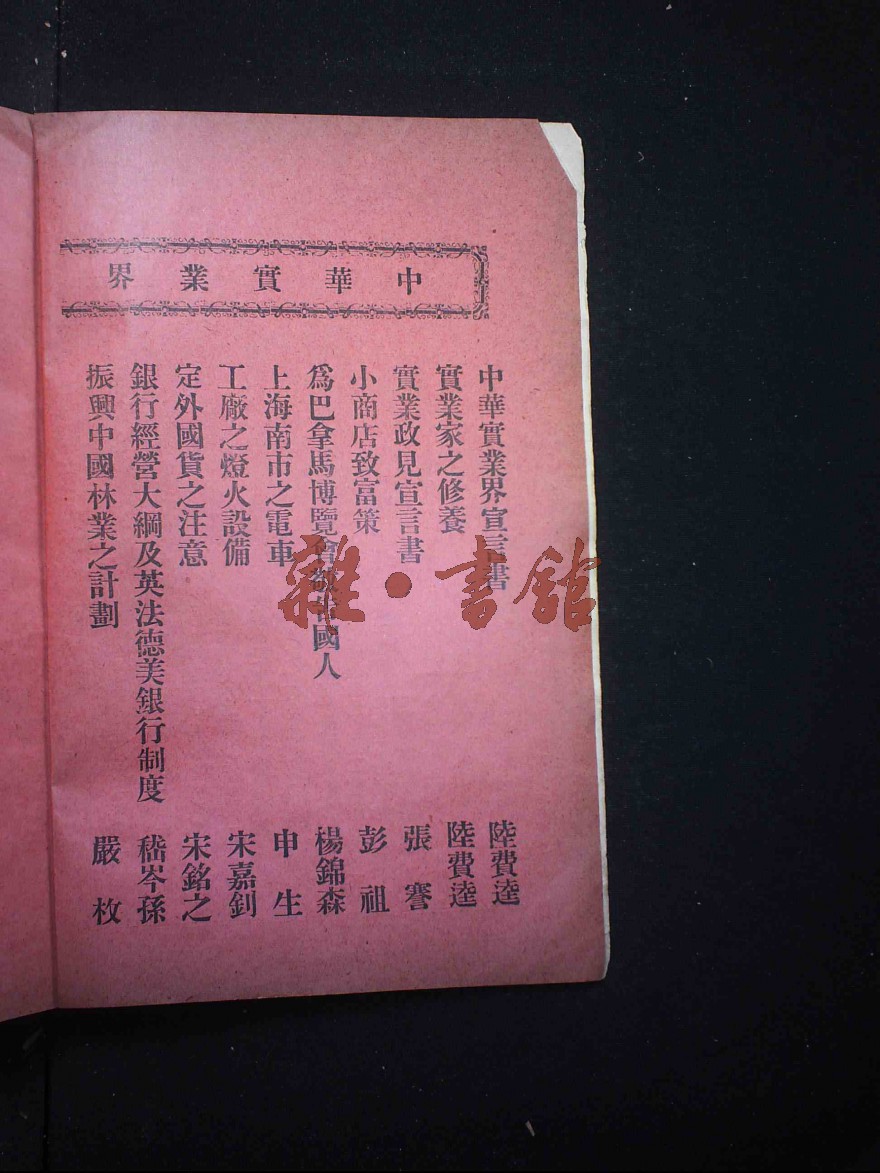 中華實業界
中華實業界宣言書 陸費逵
實業家之修養 陸費逵
實業政見宣言書 張謇
小商店致富策 彭祖
爲巴拿馬博覽會敬告國人 楊錦森
上海南市之電車 申生
工廠之燈火設備 宋嘉釗
定外國貨之注意 宋銘之
銀行經營大綱及英法德美銀行制度 嵇岑孫
振興中國林業之計劃 嚴枚
雜·書館